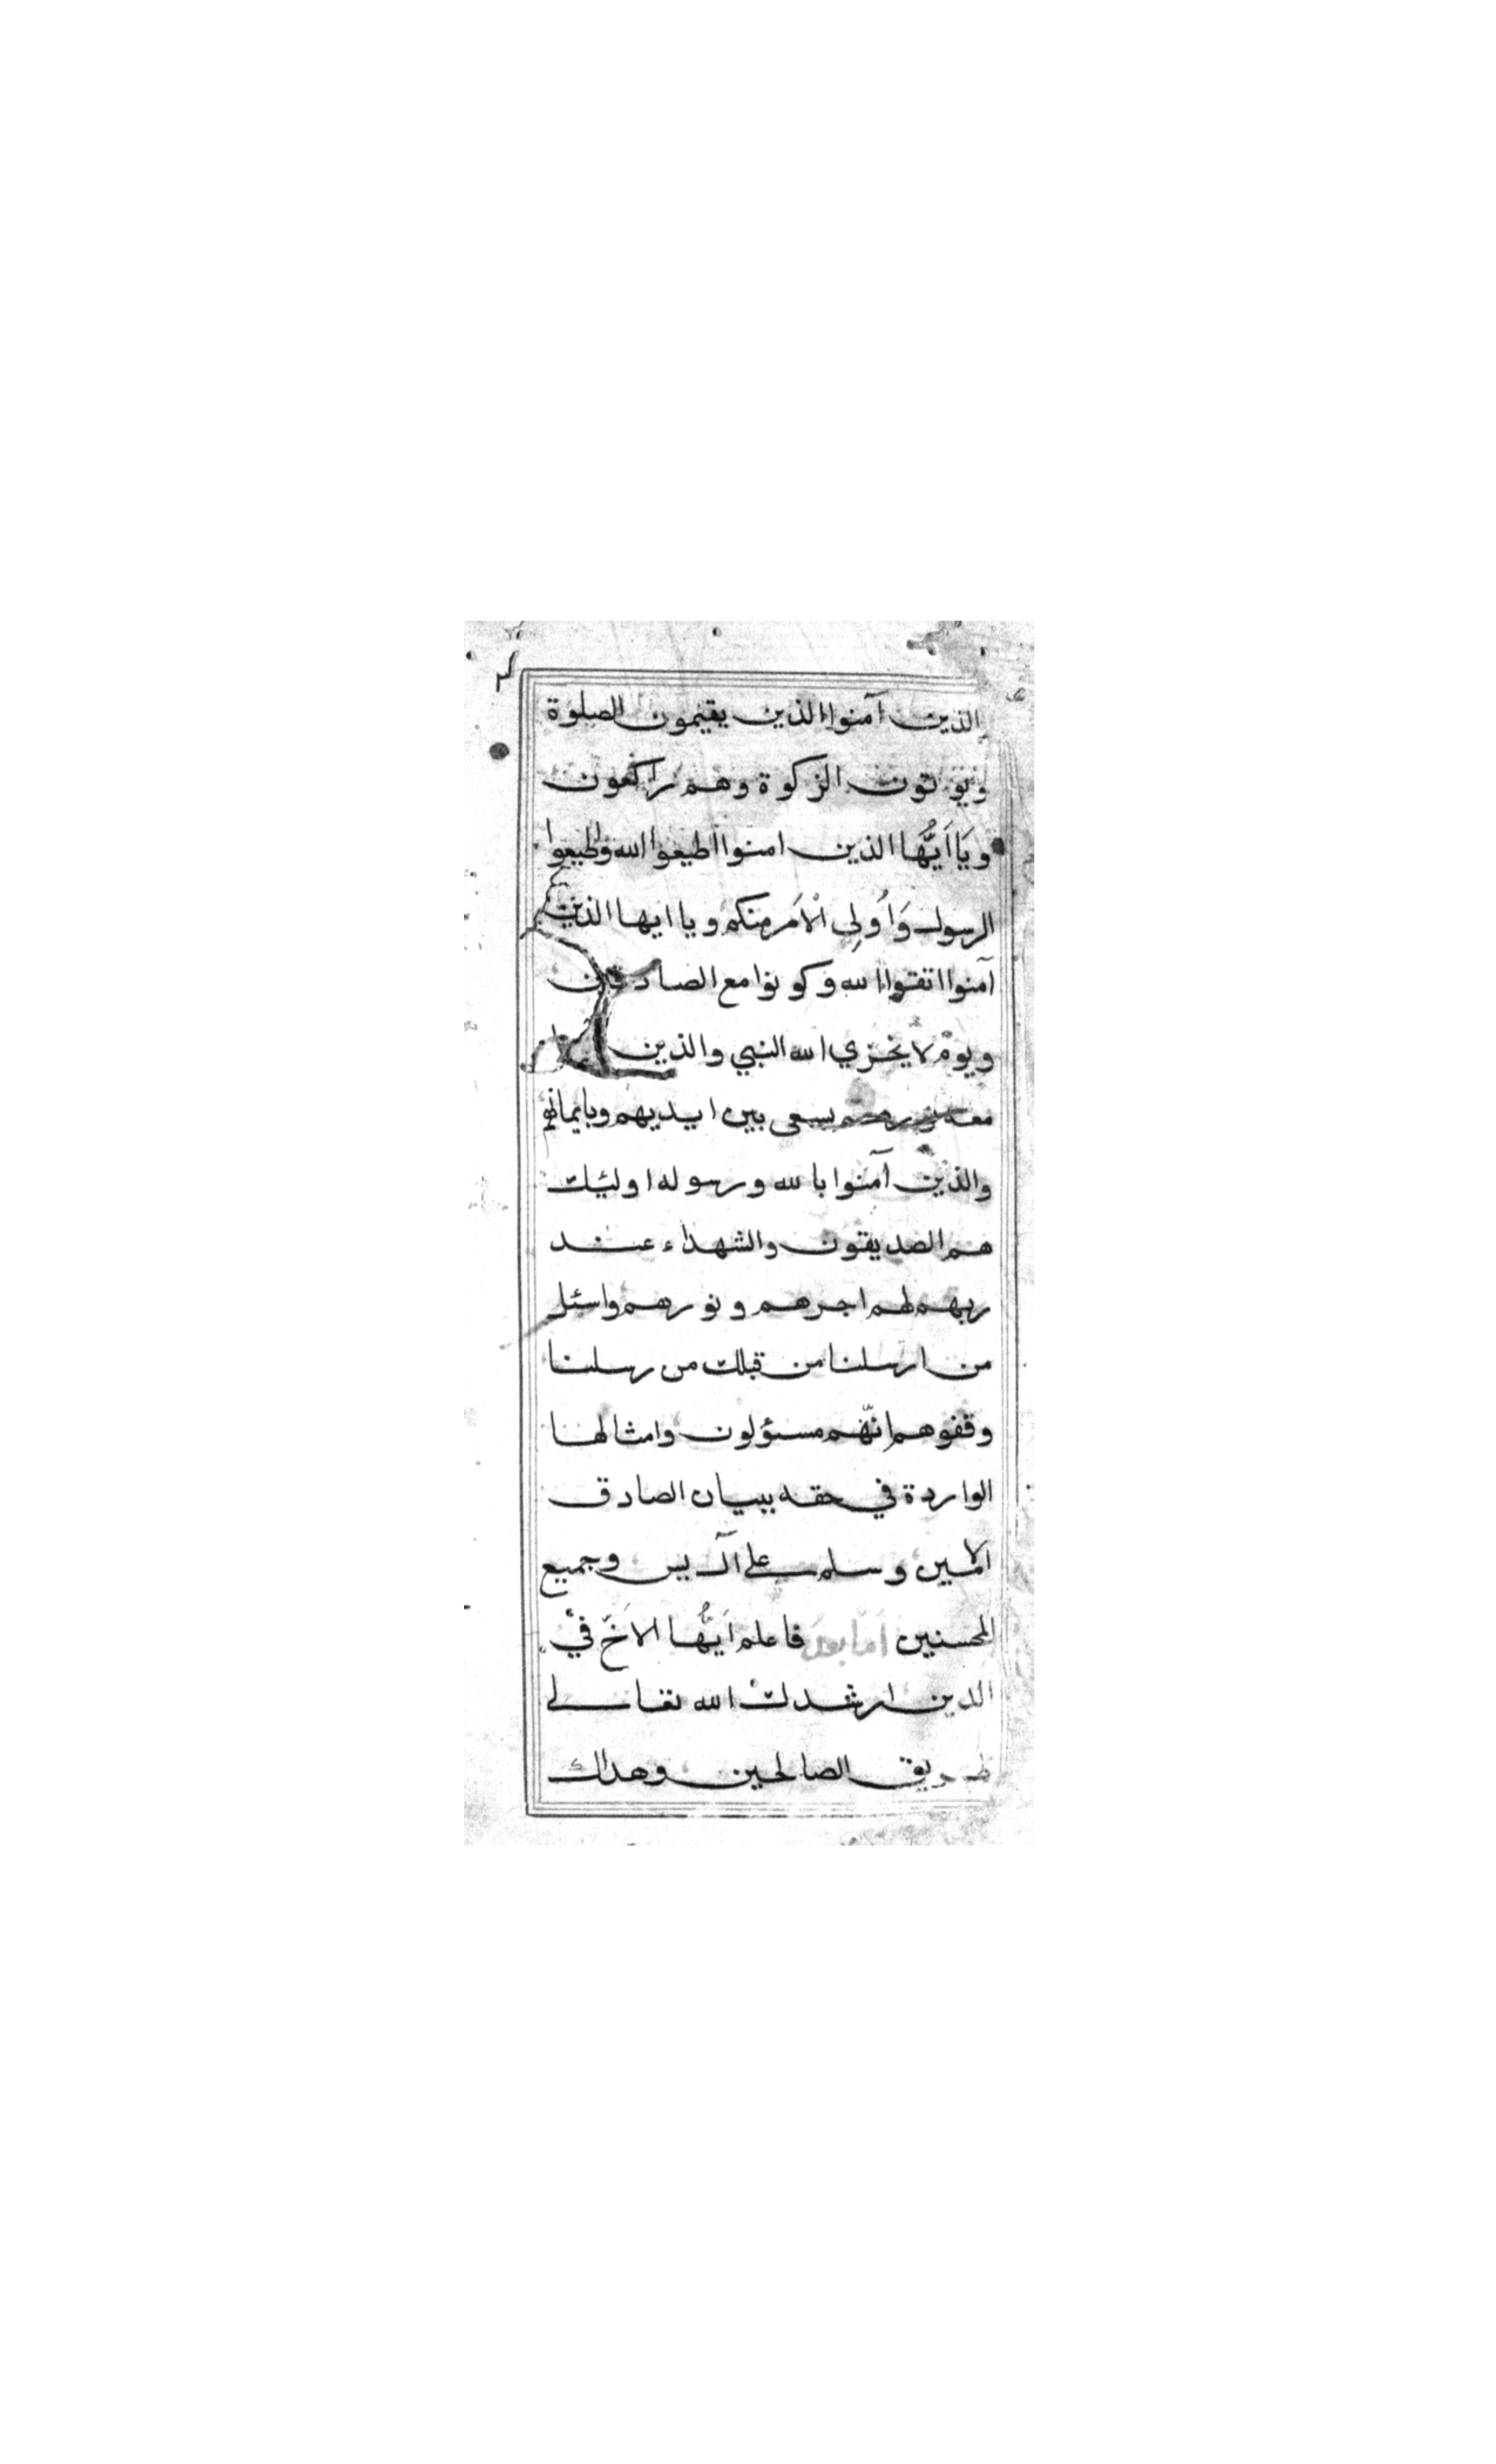 الذين آمنوا الذين يقيمون الصلوة
ويؤتون الزكوة وهم راكعون
ويَا اَيُّها الذين امنوا اطيعوا الله واطيعوا
الرسول وَاُولِي الْاَمر منكم ويا ايها الذين
آمنوا اتقوا الله وكونوا مع الصادقين
ويوم لا يخزي الله النبي والذين
معه نورهم يسعى بين ايديهم وبايمانهم
والذين آمنوا بالله ورسوله اولئيك
هم الصديقون والشهداء عند
ربهم لهم اجرهم ونورهم واسئل
من ارسلنا من قبلك من رسلنا
وقفوهم انّهم مسئولون وامثالها
الواردة في حقه ببيان الصادق
الامين وسلم على آل يس وجميع
المحسنين اَمّا بعد فاعلم اَيُّها الاَخّ في
الدين ارشدك الله تعالى
طريق الصالحين وهداك